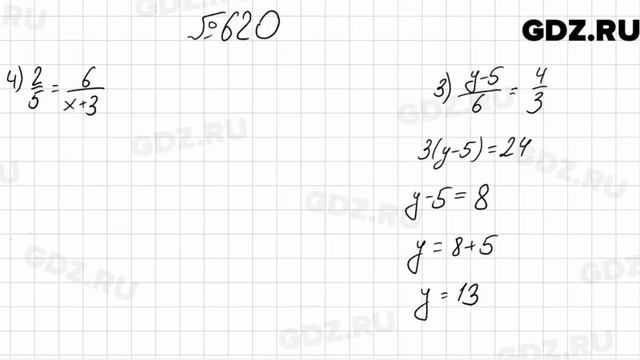 №620
GDZ.RU
4) 2/5 = 6/(x+3)
3) (y-5)/6 = 4/3
3(y-5)=24
y-5=8
y=8+5
y=13
GDZ.RU
GDZ.RU
GDZ.RU
GDZ.RU
GDZ.RU
GDZ.RU
GDZ.RU